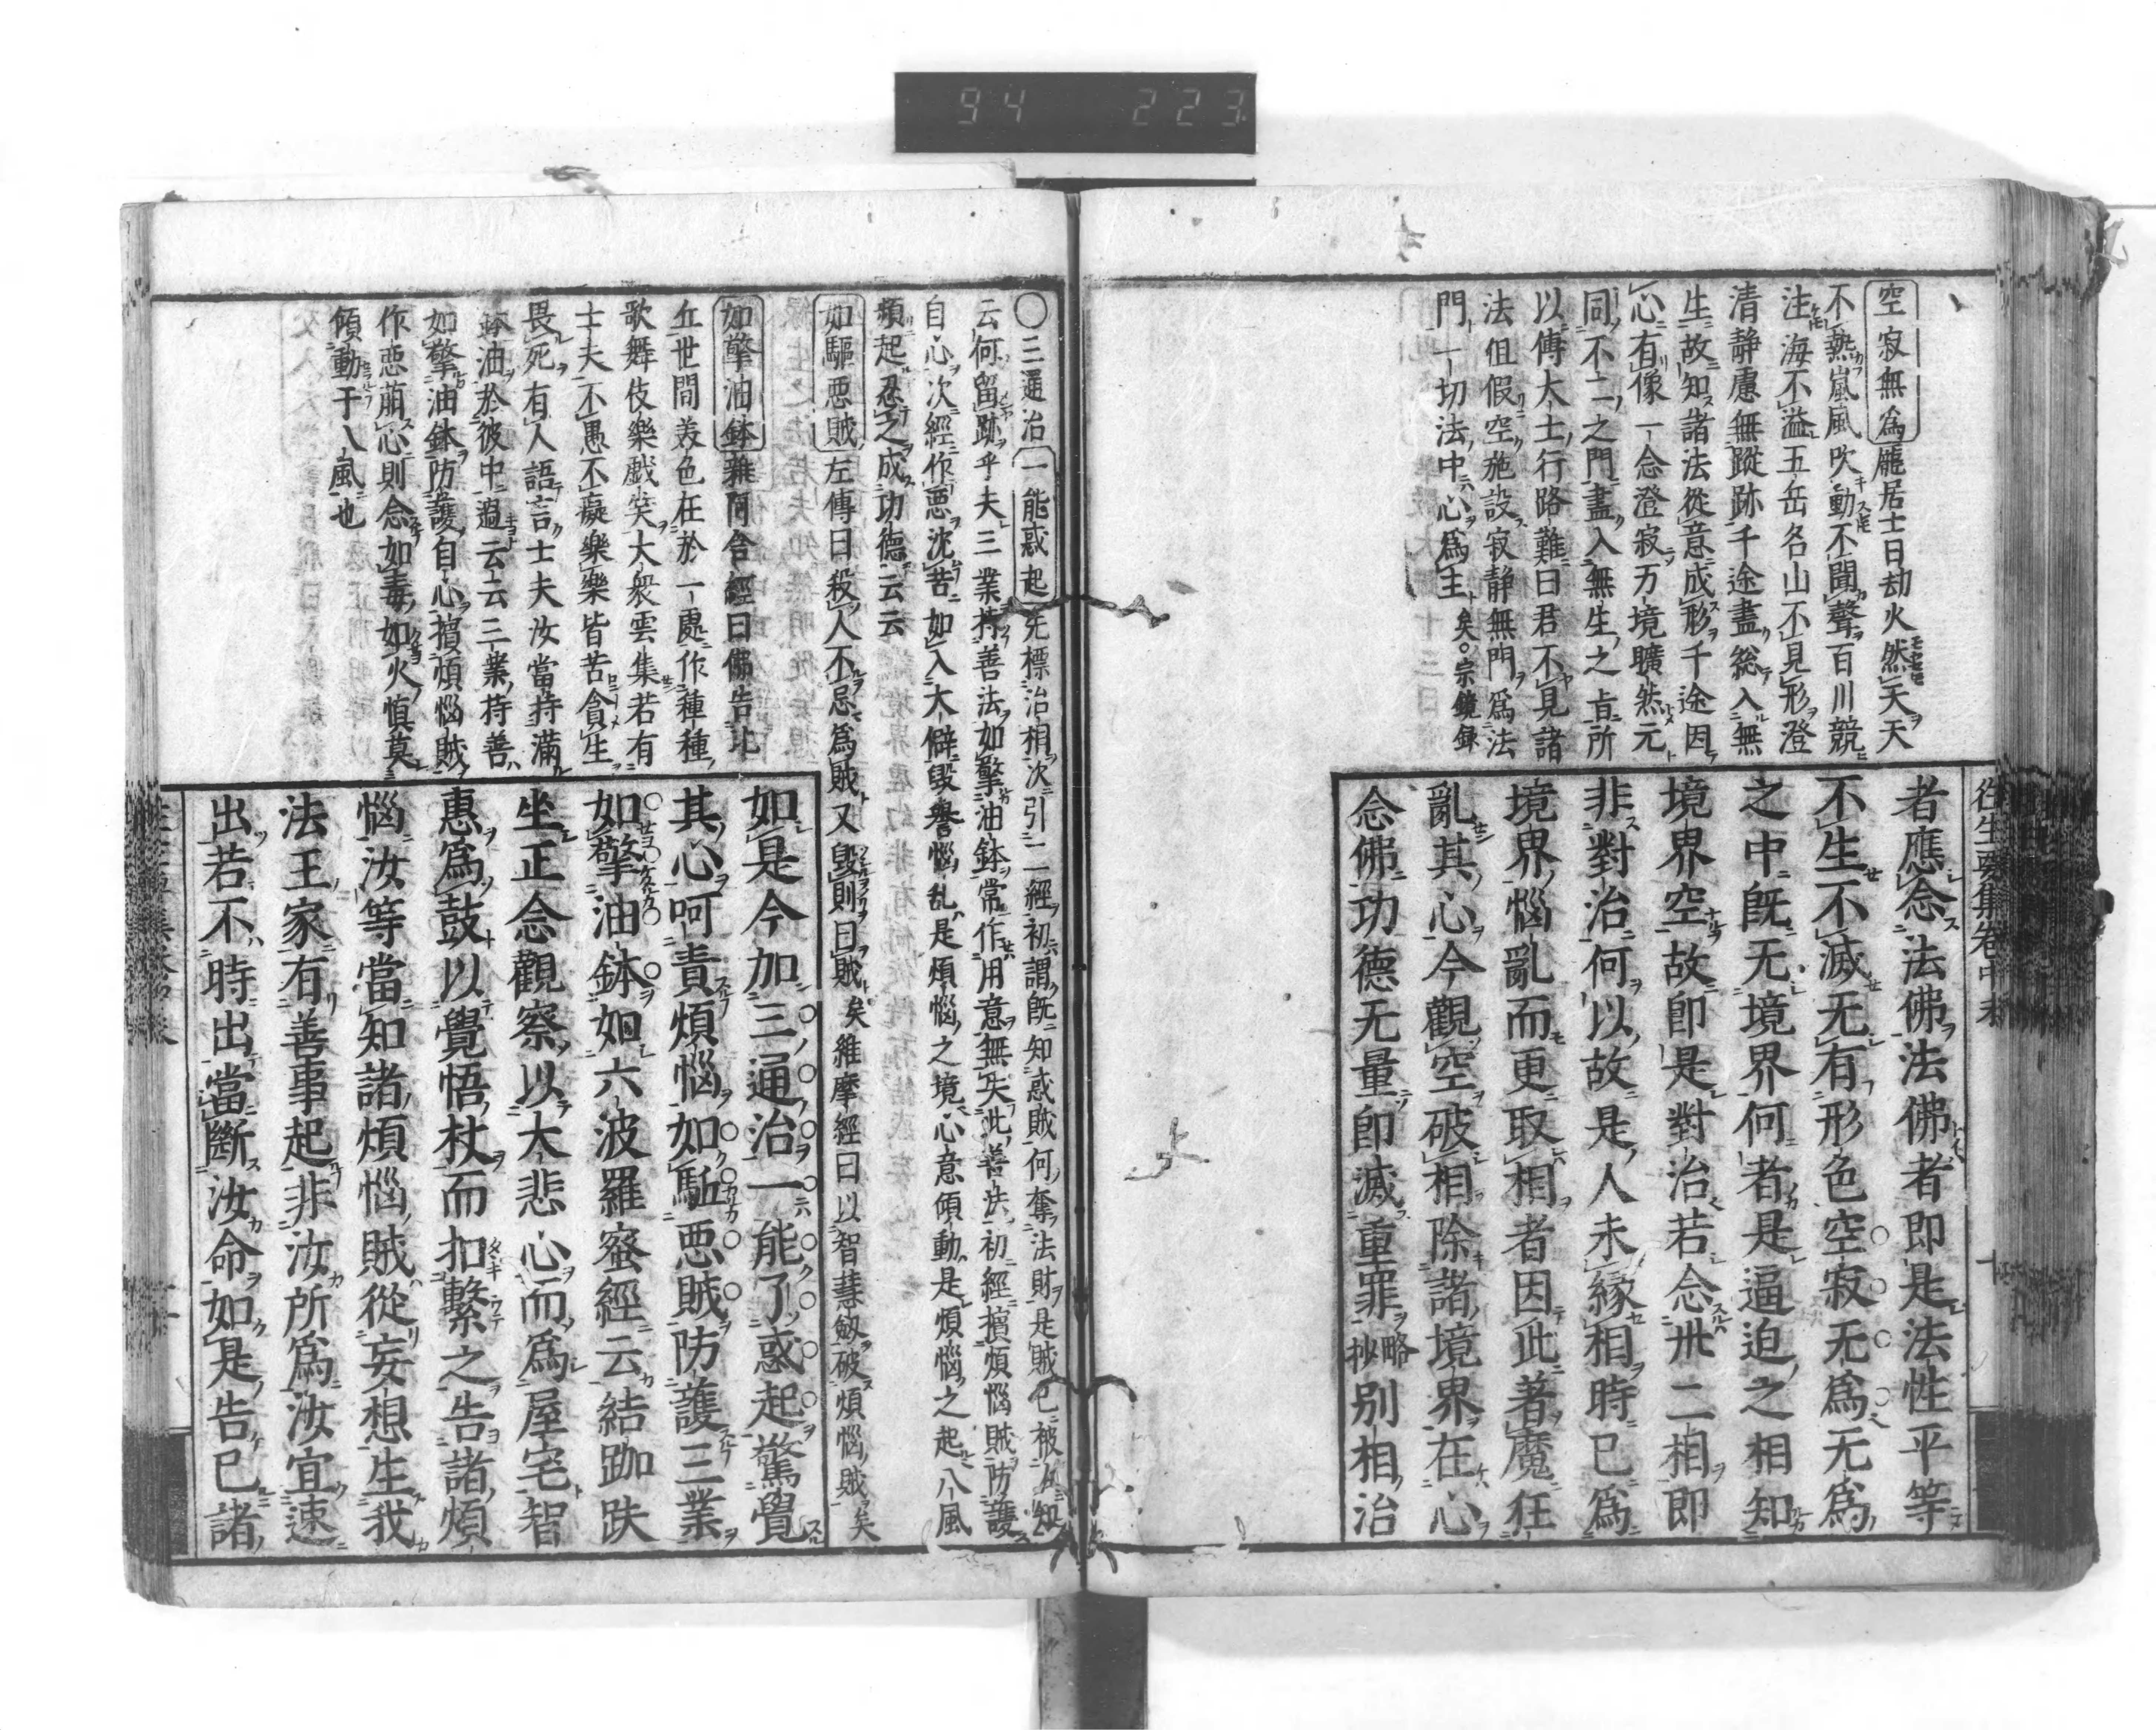 94 223
空寂無爲龐居士曰劫火然天天
不熱嵐風吹動不聞聲百川競
注海不溢五岳名山不見形澄
清靜慮無蹤跡千途盡総入無
生故知諸法從意成形千途因
心有像一念澄寂万境曠然元
同不二之門盡入無生之旨所
以傅大士行路難曰君不見諸
法但假空施設寂靜無門爲法
門一切法中心爲主矣。宗鏡録
往生要集卷中末
者應念法佛法佛者即是法性平等
不生不滅无有形色空寂无爲无爲
之中既无境界何者是逼迫之相知
境界空故即是對治若念卅二相即
非對治何以故是人未緣相時已爲
境界惱亂而更取相者因此著魔狂
亂其心今觀空破相除諸境界在心
念佛功德无量即滅重罪略抄別相治
〇三通治一能惑起先標治相次引二經初謂既知惑賊何奪法財是賊已被人知
云何留跡乎夫三業持善法如擎油鉢常作用意無失此善法初經擯煩惱賊防護
自心次經作惡沈苦如入大僻毀譽惱乱是煩惱之境心意傾動是煩惱之起八風
頻起忍之成功德云云
如驅惡賊左傳曰殺人不忌爲賊又毀則曰賊矣維摩經曰以智慧劔破煩惱賊矣
如擎油鉢雜阿含經曰佛告比
丘世間美色在於一處作種種
歌舞伎樂戲笑大衆雲集若有
士夫不愚不癡樂樂皆苦貪生
畏死有人語言士夫汝當持滿
鉢油於彼中過云云三業持善
如擎油鉢防護自心擯煩惱賊
作惡萠心則念如毒如火慎莫
傾動于八風也
如是今加三通治一能了惑起驚覺
其心呵責煩惱如駈惡賊防護三業
如擎油鉢如六波羅蜜經云結跏趺
坐正念觀察以大悲心而爲屋宅智
惠爲鼓以覺悟杖而扣擊之告諸煩
惱汝等當知諸煩惱賊從妄想生我
法王家有善事起非汝所爲汝宜速
出若不時出當斷汝命如是告已諸